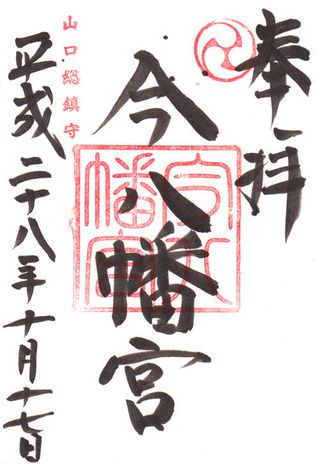 奉拝
今八幡宮
山口総鎮守
平成二十八年十月十七日
今八幡宮